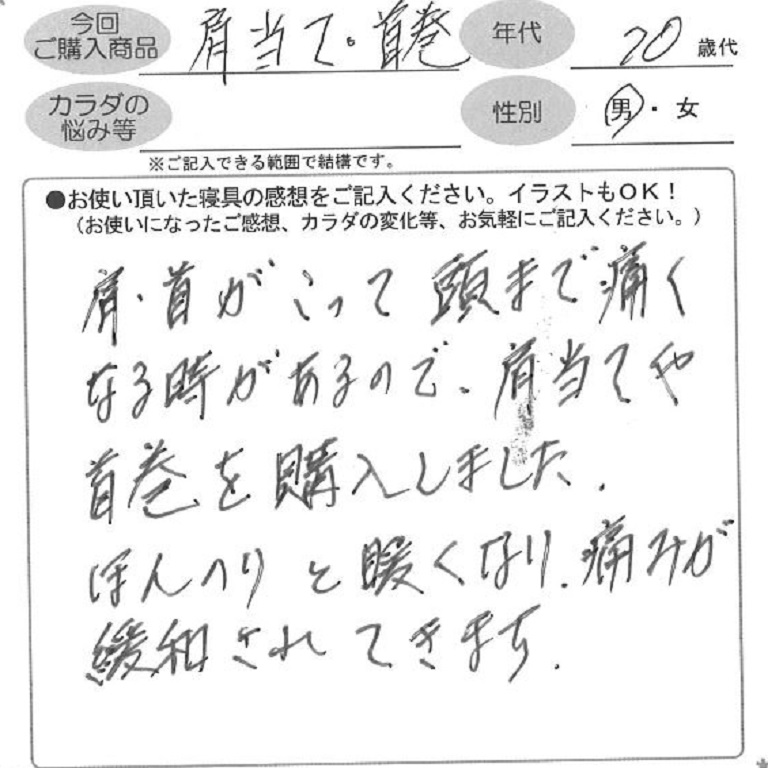 今回
ご購入商品
肩当て・首巻
年代
20歳代
カラダの
悩み等
性別
男・女
※ご記入できる範囲で結構です。
●お使い頂いた寝具の感想をご記入ください。イラストもOK!
(お使いになったご感想、カラダの変化等、お気軽にご記入ください。)
肩・首がこって頭まで痛く
なる時があるので、肩当てや
首巻を購入しました。
ほんのりと暖くなり、痛みが
緩和されてきます。